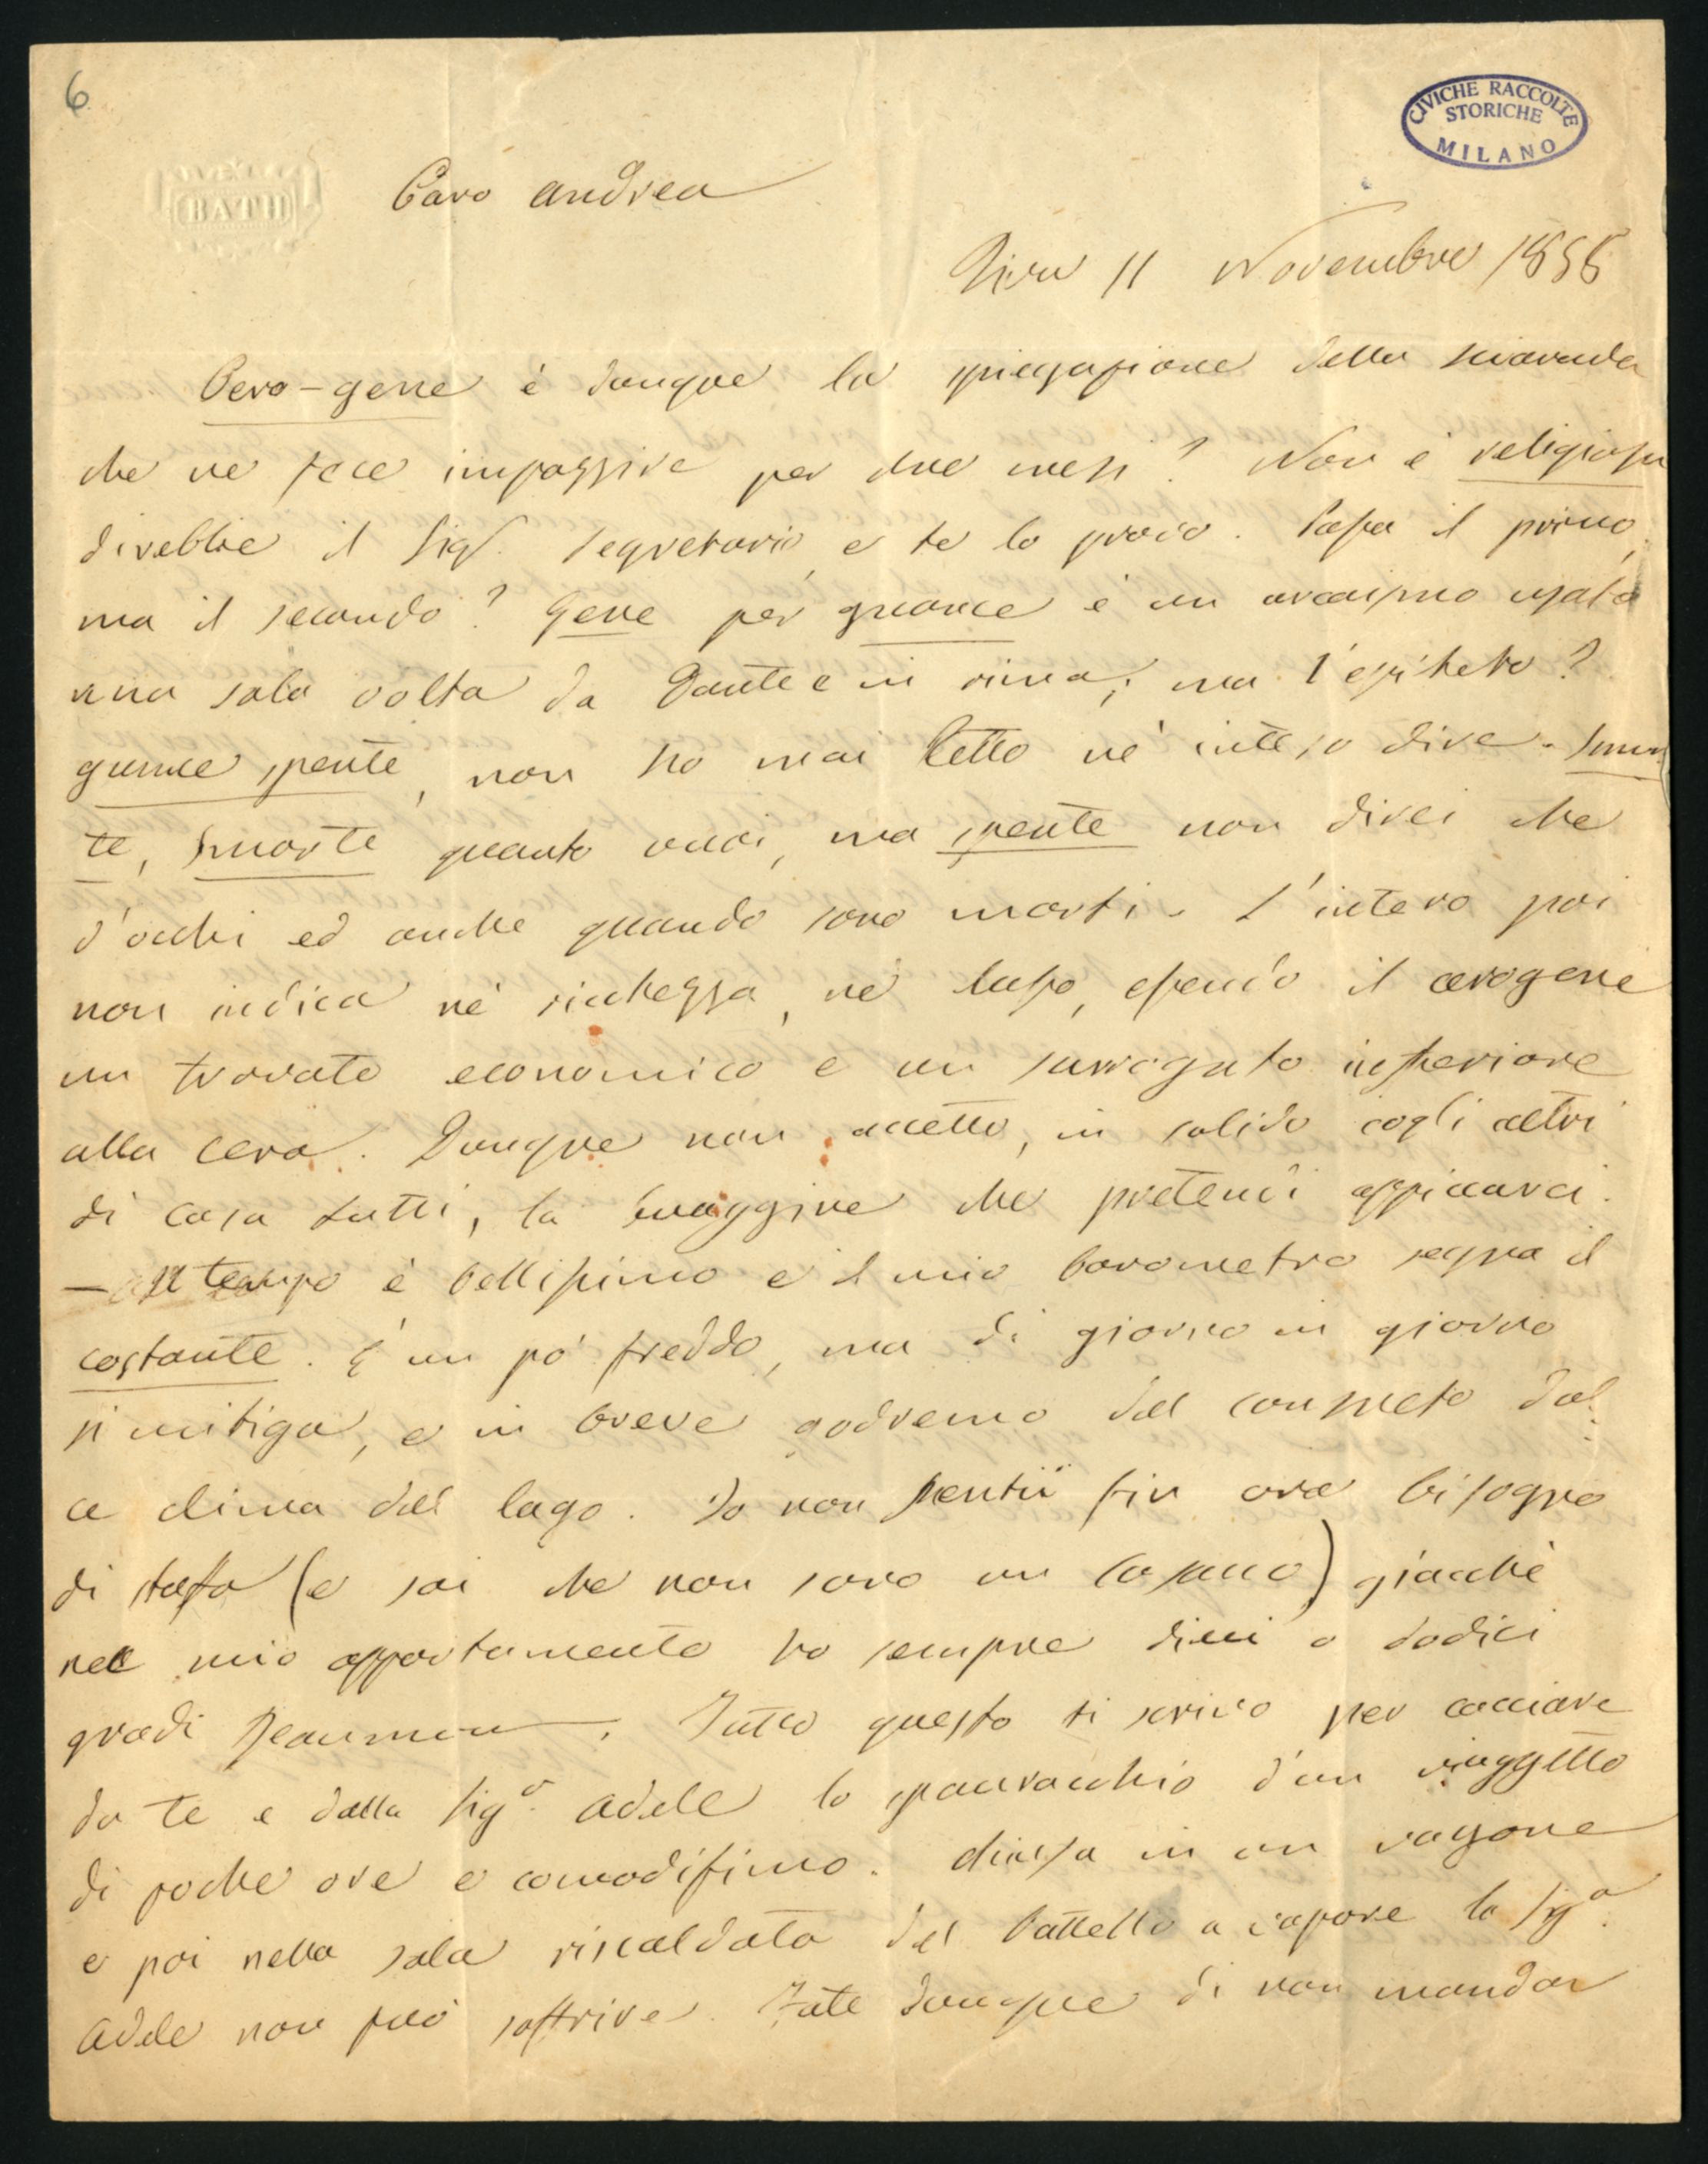 6
CIVICHE RACCOLTE
STORICHE
MILANO
BATH
Caro Andrea
11 Novembre 1858
Cero-gene è dunque la spiegazione della sciarada
che ne fece impazzire per due mesi? Non è religiosa
direbbe il Sigr. Segretario, e te lo provo. Passa il primo,
ma il secondo? Gene per guance è un arcaismo usato
una sola volta da Dante e in rima; ma l'epiteto?
guance spente, non ho mai letto nè inteso dire. Smun
te, smorte quanto vuoi, ma spente non direi che
d'occhi ed anche quando sono morti. L'intero poi
non indica nè ricchezza, nè lusso, essendo il cerogene
un trovato economico e un surrogato inferiore
alla cera. Dunque non accetto, in solido cogli altri
di casa tutti, la buaggine che pretendi appiccarci.
— Il tempo è bellissimo e il mio barometro segna il
costante. È un pò freddo, ma di giorno in giorno
si mitiga, e in breve godremo del consueto dol
ce clima del lago. Io non sentii fin ora bisogno
di stufa (e sai che non sono un ) giacchè
nel mio appartamento ho sempre dieci o dodici
gradi Reaumur. Tutto questo ti scrivo per cacciare
da te e dalla Siga. Adele lo spauracchio d'un viaggetto
di poche ore e comodissimo. Chiusa in un vagone
e poi nella sala riscaldata del battello a vapore la Siga.
Adele non può soffrire. Fate dunque di non mandar